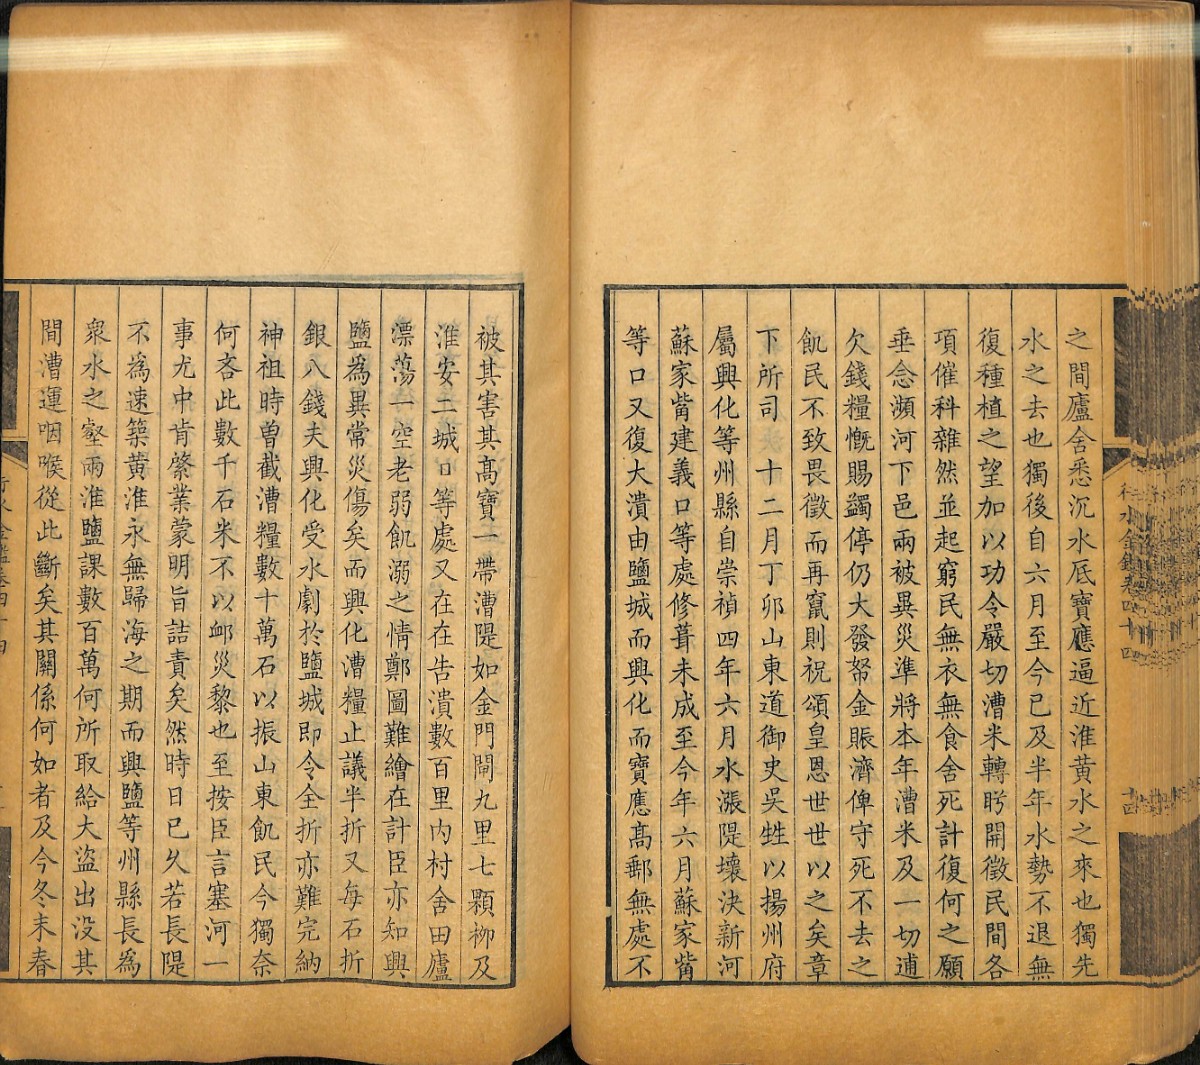 之間廬舍悉沉水底寶應逼近淮黃水之來也獨先
水之去也獨後自六月至今已及半年水勢不退無
復種植之望加以功令嚴切漕米轉盻開徵民間各
項催科雜然並起窮民無衣無食舍死計復何之願
垂念瀕河下邑兩被異災準將本年漕米及一切逋
欠錢糧慨賜蠲停仍大發帑金賑濟俾守死不去之
飢民不致畏徵而再竄則祝頌皇恩世世以之矣章
下所司 十二月丁卯山東道御史吳甡以揚州府
屬興化等州縣自崇禎四年六月水漲隄壞決新河
蘇家嘴建義口等處修葺未成至今年六月蘇家嘴
等口又復大潰由鹽城而興化而寶應高郵無處不
行水金鑑卷四十四
被其害其高寶一帶漕隄如金門閘九里七顆柳及
淮安二城口等處又在在告潰數百里內村舍田廬
漂蕩一空老弱飢溺之情鄭圖難繪在計臣亦知興
鹽為異常災傷矣而興化漕糧止議半折又每石折
銀八錢夫興化受水劇於鹽城即令全折亦難完納
神祖時曾截漕糧數十萬石以振山東飢民今獨奈
何吝此數千石米不以卹災黎也至按臣言塞河一
事尤中肯綮業蒙明旨詰責矣然時日已久若長隄
不為速築黃淮永無歸海之期而興鹽等州縣長為
衆水之壑兩淮鹽課數百萬何所取給大盜出沒其
間漕運咽喉從此斷矣其關係何如者及今冬未春